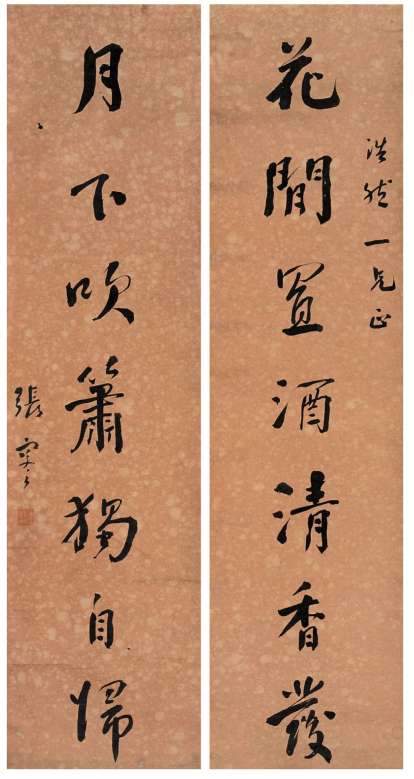 浩然一兄正
花間置酒清香發
月下吹簫獨自歸
張謇